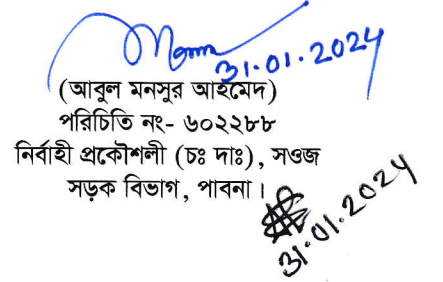 31.01.2024
(আবুল মনসুর আহমেদ)
পরিচিতি নং- ৬০২২৮৮
নির্বাহী প্রকৌশলী (চঃ দাঃ), সওজ
সড়ক বিভাগ, পাবনা।
31.01.2024